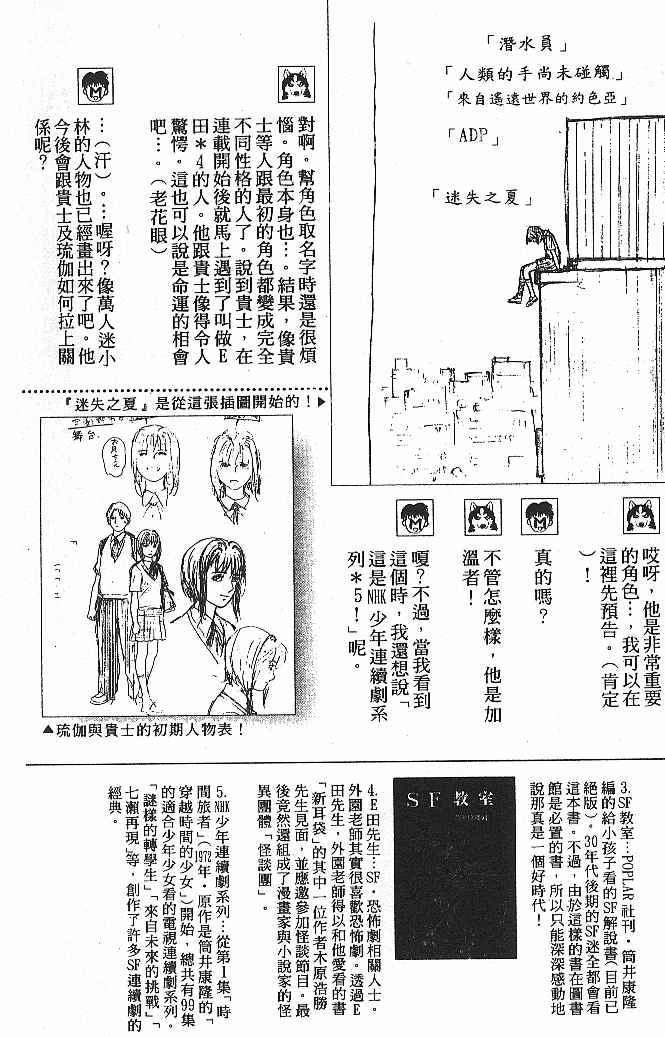 「潛水員」
「人類的手尚未碰觸」
「來自遙遠世界的約色亞」
「ADP」
「迷失之夏」
對啊。幫角色取名字時還是很煩
惱。角色本身也…。結果，像貴
士等人跟最初的角色都變成完全
不同性格的人了。說到貴士，在
連載開始後就馬上遇到了叫做E
田*4的人。他跟貴士像得令人
驚愕。這也可以說是命運的相會
吧…。（老花眼）
…（汗）。…喔呀？像萬人迷小
林的人物也已經畫出來了吧。他
今後會跟貴士及琉伽如何拉上關
係呢？
『迷失之夏』是從這張插圖開始的！▶
舞台.
▲琉伽與貴士的初期人物表！
哎呀，他是非常重要
的角色…，我可以在
這裡先預告。（肯定
）！
真的嗎？
不管怎麼樣，他是加
溫者！
嗄？不過，當我看到
這個時，我還想說「
這是NHK少年連續劇系
列*5！」呢。
3.SF教室…POPLAR社刊‧筒井康隆
編的給小孩子看的SF解說書（目前已
絕版）。30年代後期的SF迷全都會看
這本書。不過，由於這樣的書在圖書
館是必置的書，所以只能深深感動地
說那真是一個好時代！
SF教室
4.E田先生…SF‧恐怖劇相關人士。
外園老師其實很喜歡恐怖劇。透過E
田先生，外園老師得以和他愛看的書
「新耳袋」的其中一位作者木原浩勝
先生見面，並應邀參加怪談節目。最
後竟然還組成了漫畫家與小說家的怪
異團體「怪談團」。
5.NHK少年連續劇系列…從第1集「時
間旅者」（1972年‧原作是筒井康隆的「
穿越時間的少女」）開始，總共有99集
的適合少年少女看的電視連續劇系列。
「謎樣的轉學生」「來自未來的挑戰」「
七瀨再現」等，創作了許多SF連續劇的
經典。